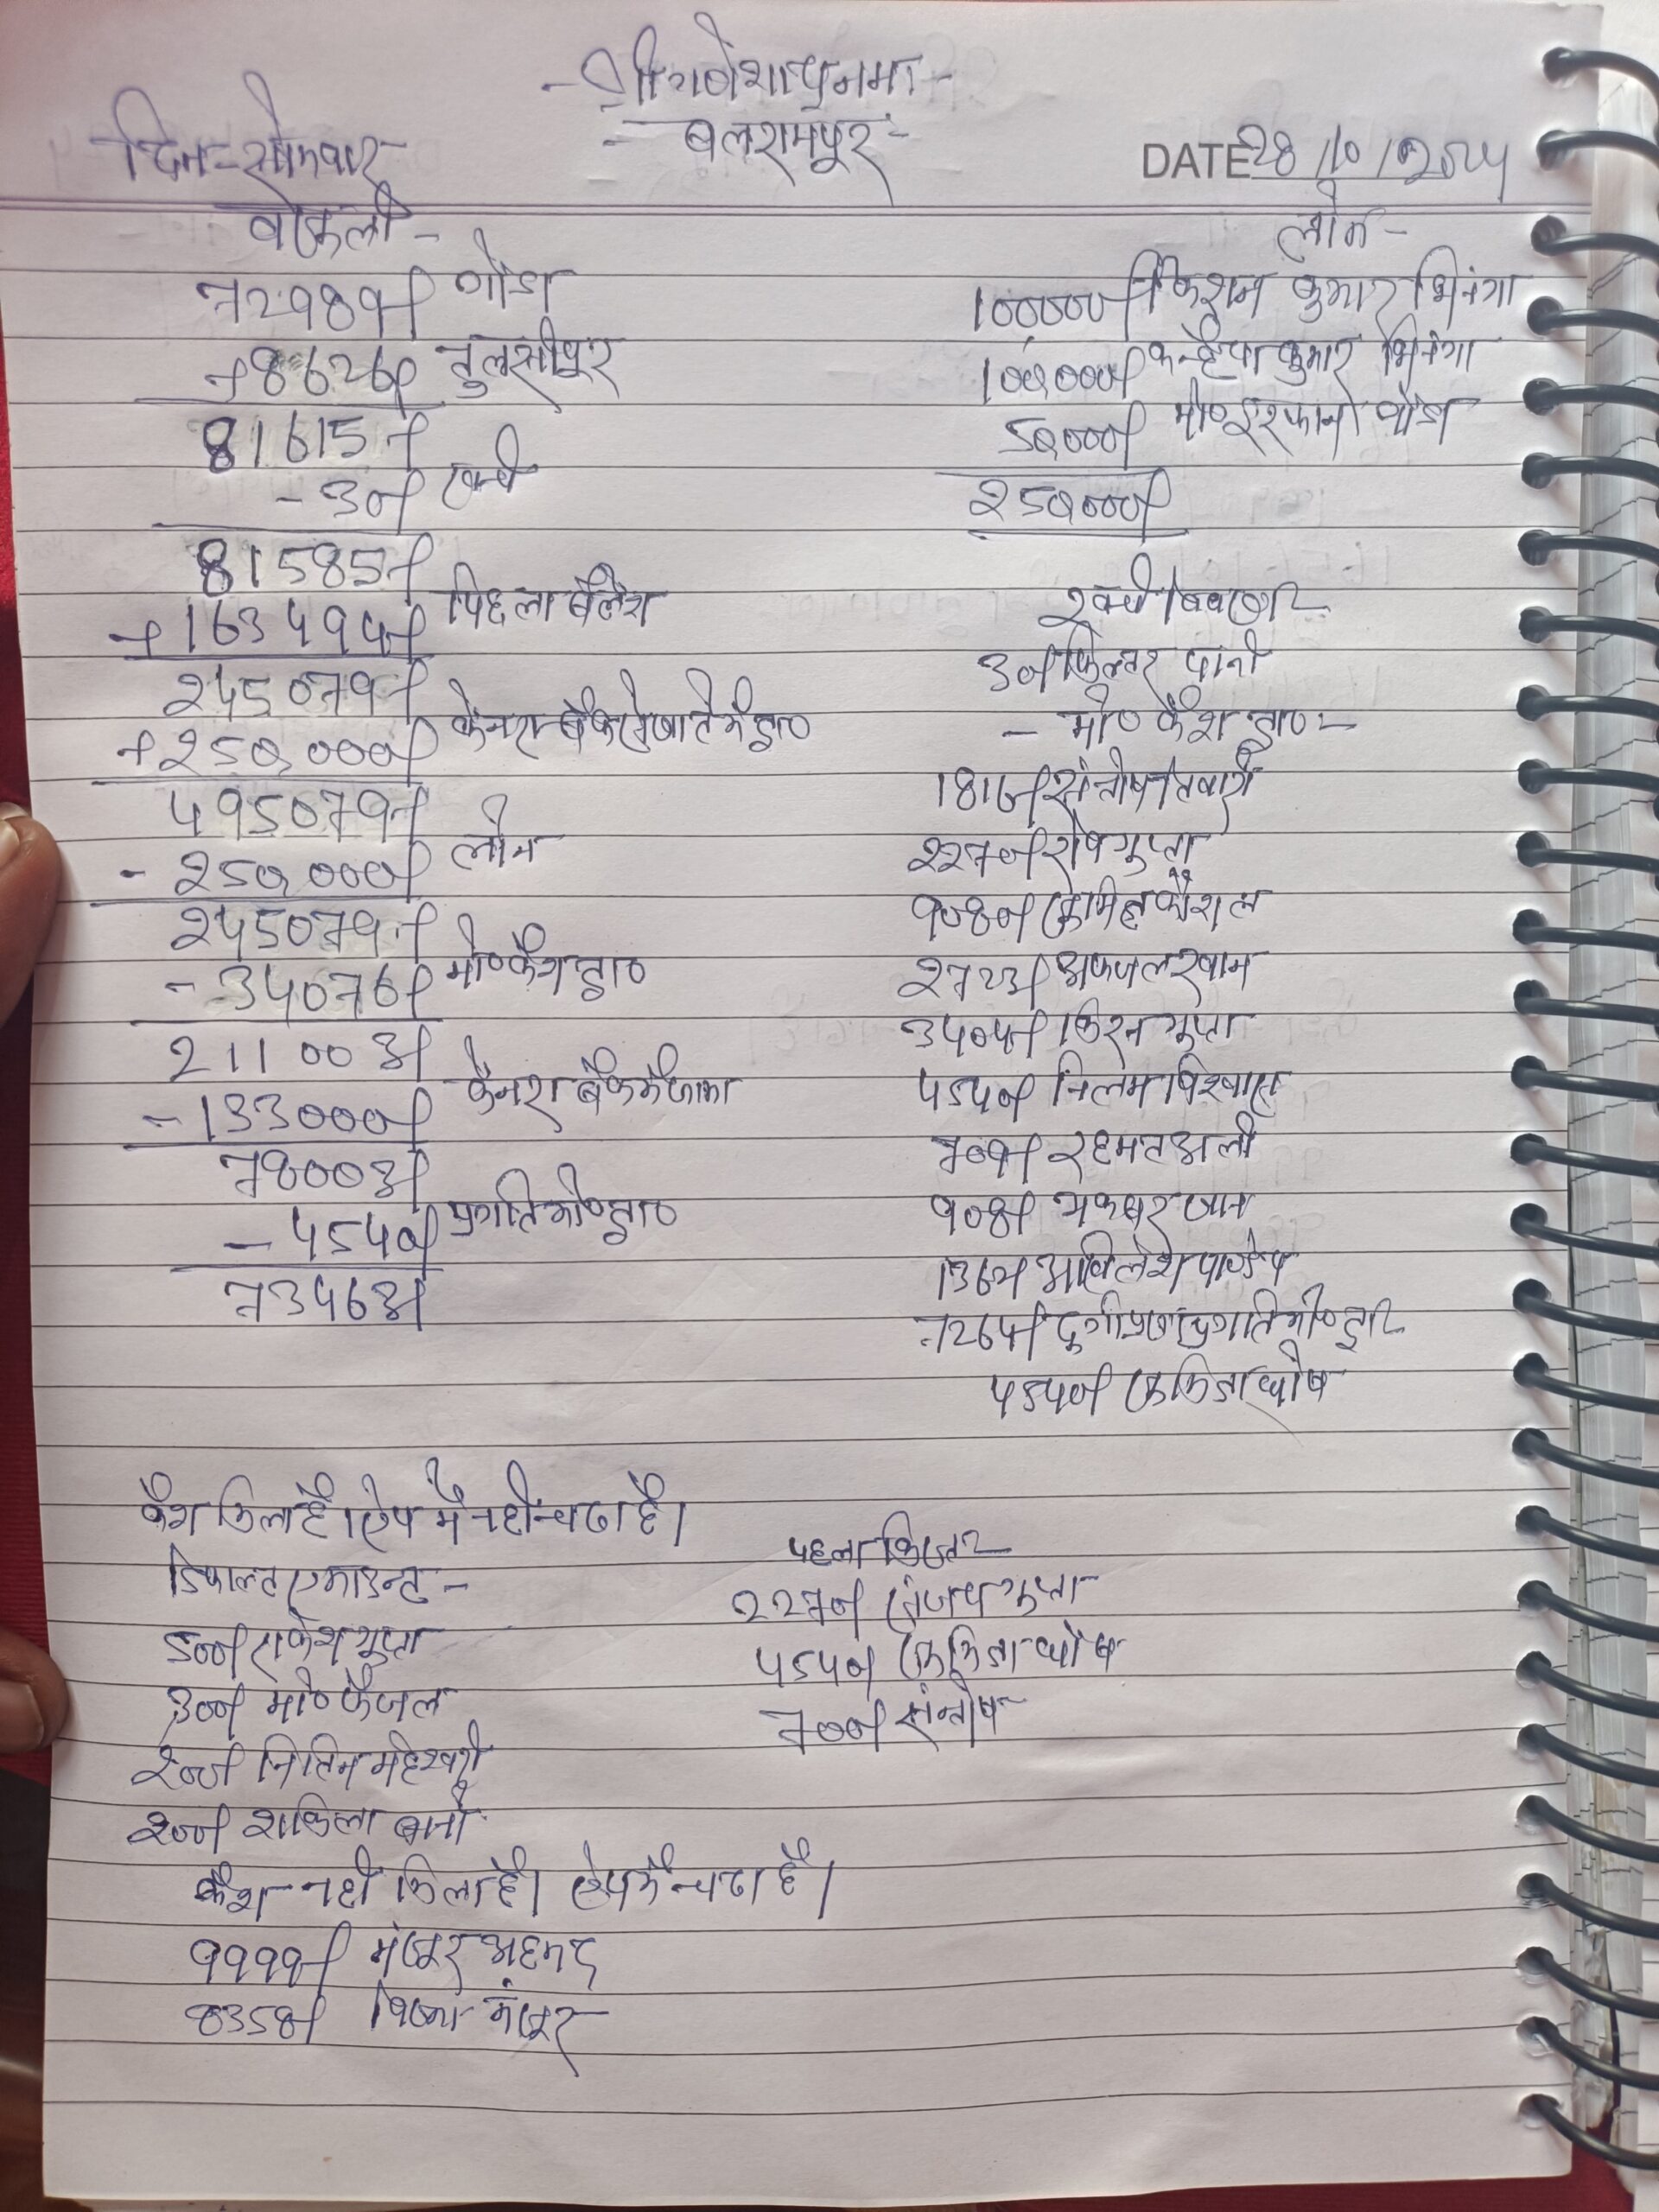 -श्री गणेशाय नमः-
-बलरामपुर-
दिन-सोमवार
DATE 28/10/2024
वोकली-
72989/ गोंडा
+8626/ तुलसीपुर
81615/
-30/ खर्च
81585/
+163494/ पिछला बैलेंश
245079/
+250,000/ केनरा बैंक से खाते में द्वा०
495079/
-250,000/ लोन
245079/
-34076/ मो० कैश द्वा०
211003/
-133000/ कैनरा बैंक में जमा
78003/
-4540/ प्रगति मो० द्वा०
73463/
लोन-
100000/ किशन कुमार भिनगा
100,000/ कन्हैया कुमार भिनगा
50,000/ मो० इरफान गोंडा
250,000/
खर्च विवरण
30/ फिल्टर पानी
-मो० कैश द्वा०-
1816/ संतोष तिवारी
2270/ शेष गुप्ता
9080/ कौशल
2723/ अफजल खान
3404/ किरन गुप्ता
4540/ निलम विश्वास
709/ रहमत अली
908/ अकबर खान
1362/ अखिलेश पाण्डेय
7264/ दुर्गा प्रगति मो० द्वार
4540/ घोष
कैश मिला है। ऐप में नही चढा है।
डिफाल्ट एमाउन्ट-
500/ राकेश गुप्ता
300/ मो० फैजल
200/ नितिन महेश्वरी
200/ शकिला बानो
पहला किस्त
2270/ संजय गुप्ता
4540/ घोष
700/ संतोष
कैश नही मिला है। ऐप में चढा है।
9999/ मंजूर अहमद
8358/ मंजूर